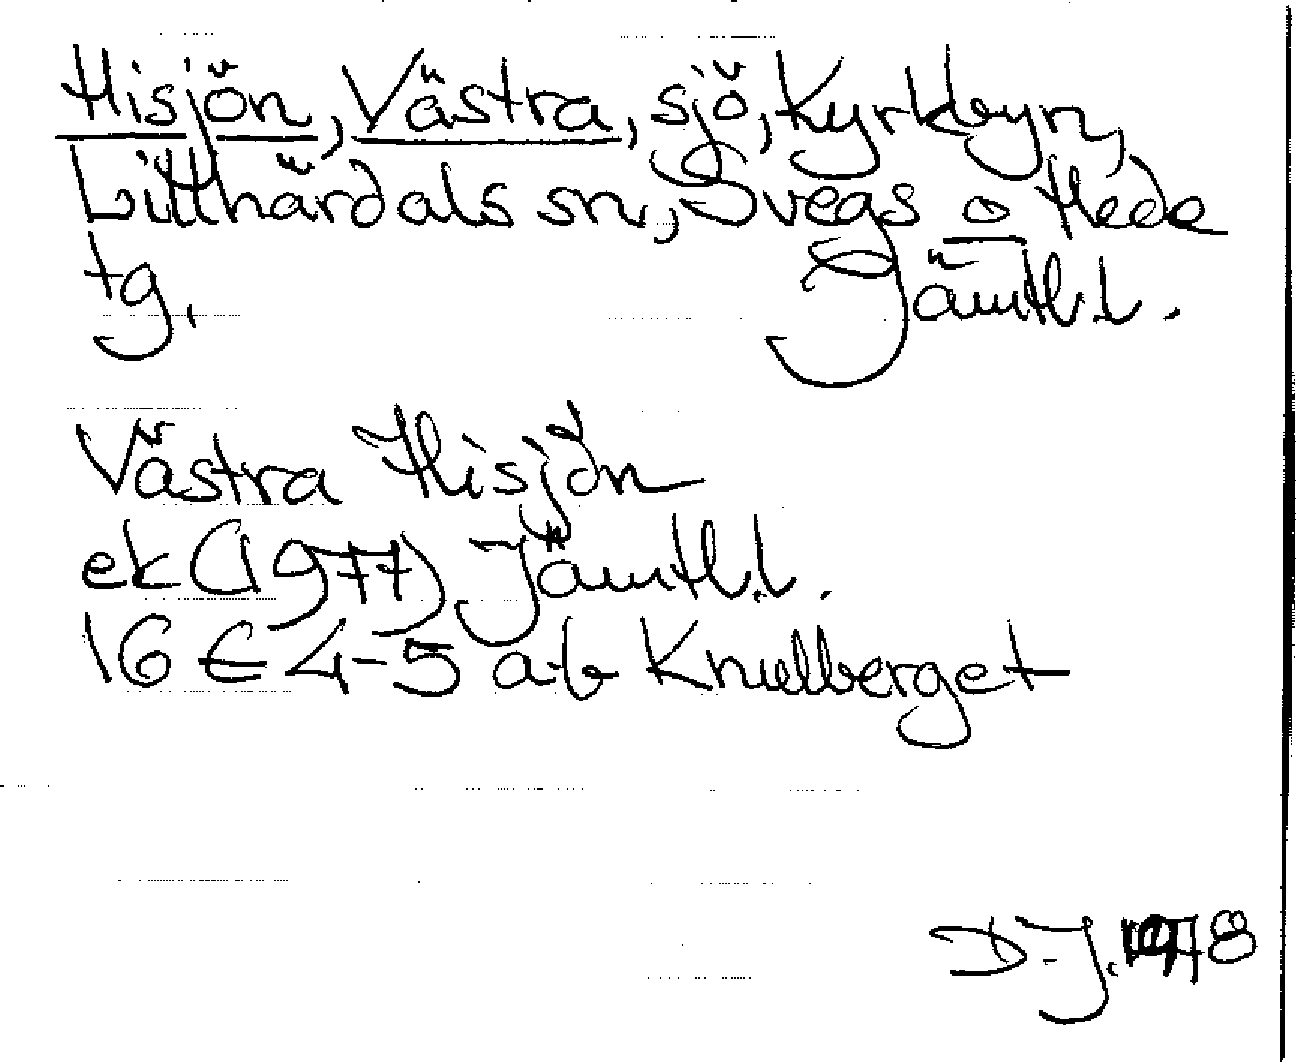 Hisjön, Västra, sjö, Kyrkbyn,
Lillhärdals sn, Svegs o Hede
tg. Jämtl.l.
Västra Hisjön
ek (1977) Jämtl.l.
16 E 4-5 a-b Knullberget
D-J. 1978